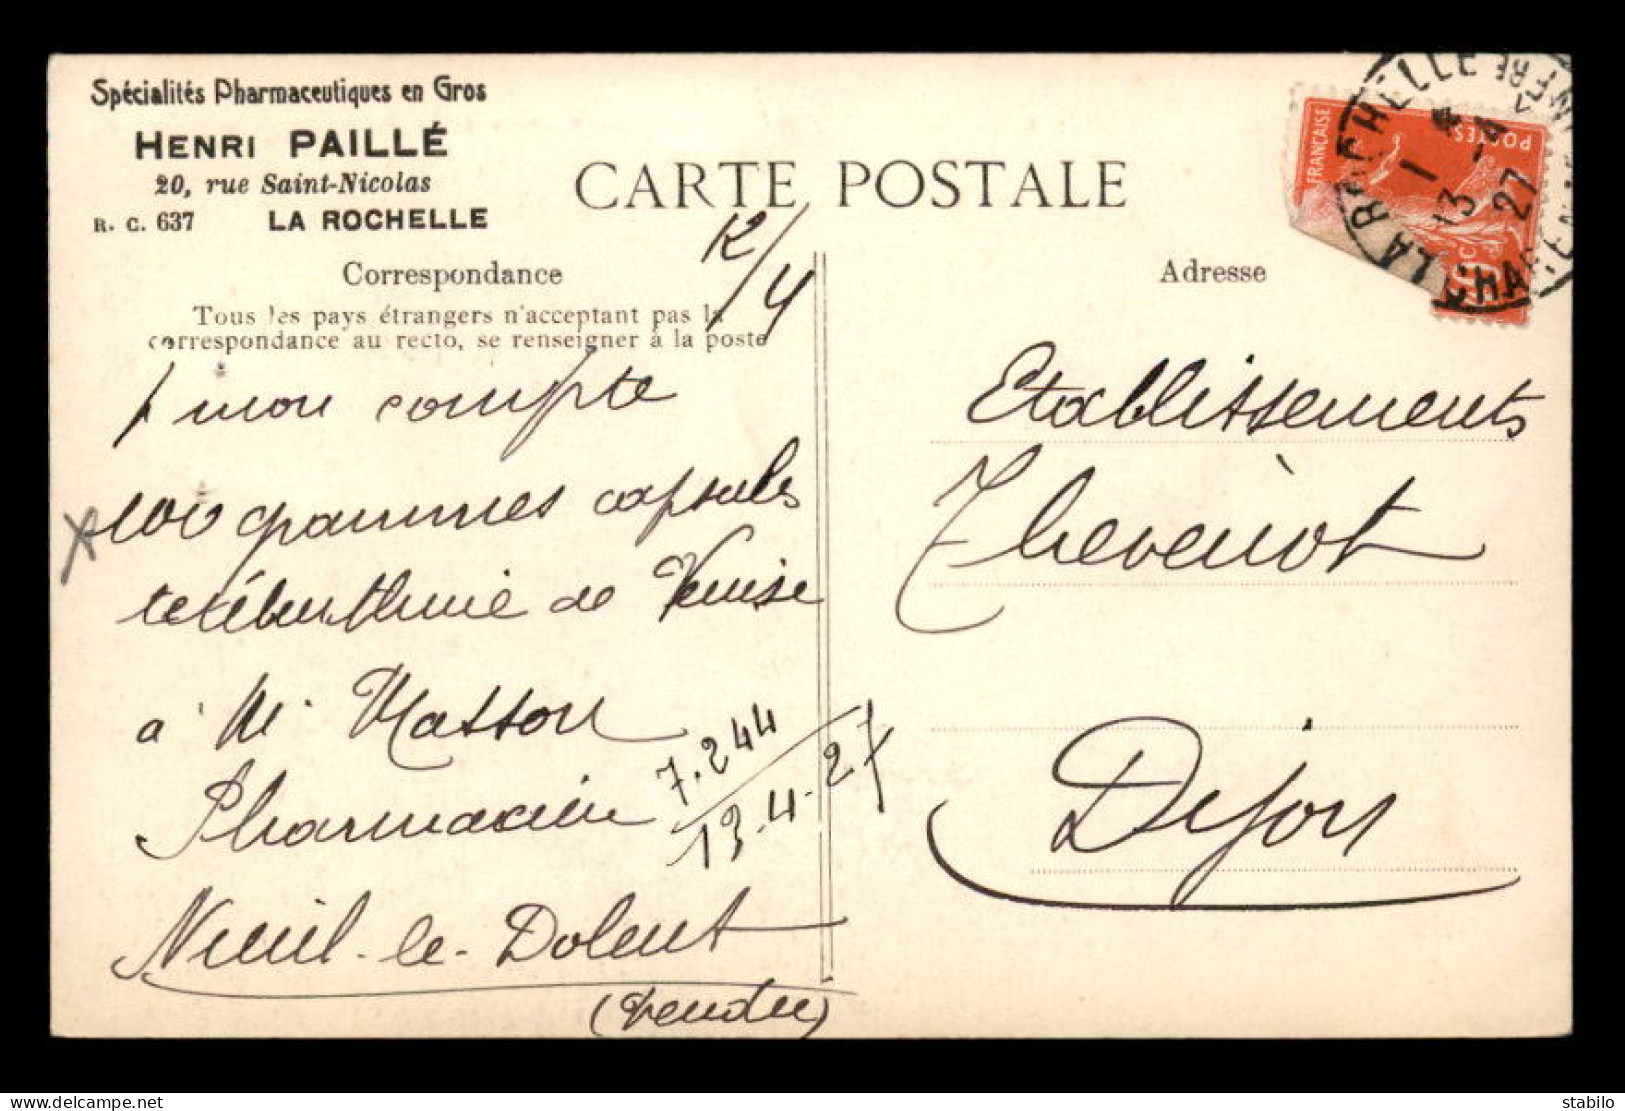 Spécialités Pharmaceutiques en Gros
HENRI PAILLÉ
20, rue Saint-Nicolas
R. C. 637 LA ROCHELLE
CARTE POSTALE
12/4
Correspondance
Tous les pays étrangers n'acceptant pas la
correspondance au recto, se renseigner à la poste
mon compte
100 grammes capsules
térébenthine de Venise
à Mr Masson
Pharmacien
Nieul-le-Dolent
(Vendée)
7.244
13.4.27
Adresse
Etablissements
Thevenot
Dijon
FRANÇAISE
POSTES
LA ROCHELLE
13 -4
27
delcampe.net
stabilo